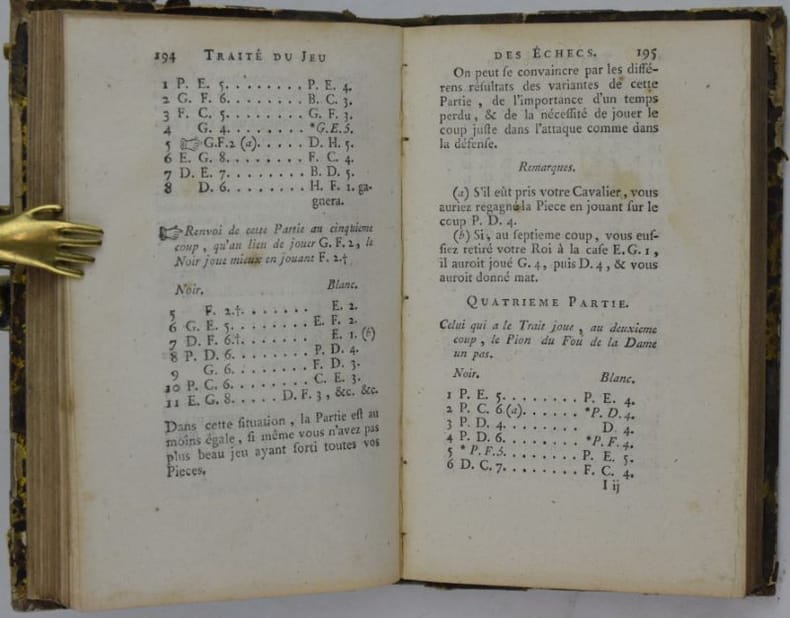 194 TRAITÉ DU JEU
1 P. E. 5. . . . . . . . P. E. 4.
2 G. F. 6. . . . . . . . B. C. 3.
3 F. C. 5. . . . . . . . G. F. 3.
4 G. 4. . . . . . . . *G.E.5.
5 ☞G.F.2 (a). . . . . D. H. 5.
6 E. G. 8. . . . . . . . F. C. 4.
7 D. E. 7. . . . . . . . B. D. 5.
8 D. 6. . . . . . . . H. F. 1. ga-
gnera.
☞Renvoi de cette Partie au cinquieme
coup, qu'au lieu de jouer G. F. 2, le
Noir joue mieux en jouant F. 2.†
Noir. Blanc.
5 F. 2.†. . . . . . . E. 2.
6 G. E. 5. . . . . . . . E. F. 2.
7 D. F. 6.†. . . . . . . E. 1. (b)
8 P. D. 6. . . . . . . . P. D. 4.
9 G. 6. . . . . . . . F. D. 3.
10 P. C. 6. . . . . . . . C. E. 3.
11 E. G. 8. . . . . D. F. 3, &c. &c.
Dans cette ſituation, la Partie eſt au
moins égale, ſi même vous n'avez pas
plus beau jeu ayant ſorti toutes vos
Pieces.
DES ÉCHECS. 195
On peut ſe convaincre par les diffé-
rens réſultats des variantes de cette
Partie, de l'importance d'un temps
perdu, & de la néceſſité de jouer le
coup juſte dans l'attaque comme dans
la défenſe.
Remarques.
(a) S'il eût pris votre Cavalier, vous
auriez regagné la Piece en jouant ſur le
coup P. D. 4.
(b) Si, au ſeptieme coup, vous euſ-
ſiez retiré votre Roi à la caſe E. G. 1,
il auroit joué G. 4, puis D. 4, & vous
auroit donné mat.
QUATRIEME PARTIE.
Celui qui a le Trait joue, au deuxieme
coup, le Pion du Fou de la Dame
un pas.
Noir. Blanc.
1 P. E. 5. . . . . . . . P. E. 4.
2 P. C. 6 (a). . . . . . *P. D. 4.
3 P. D. 4. . . . . . . . D. 4.
4 P. D. 6. . . . . . . *P. F. 4.
5 *P. F. 5. . . . . . . . P. E. 5.
6 D. C. 7. . . . . . . . F. C. 4.
I ij